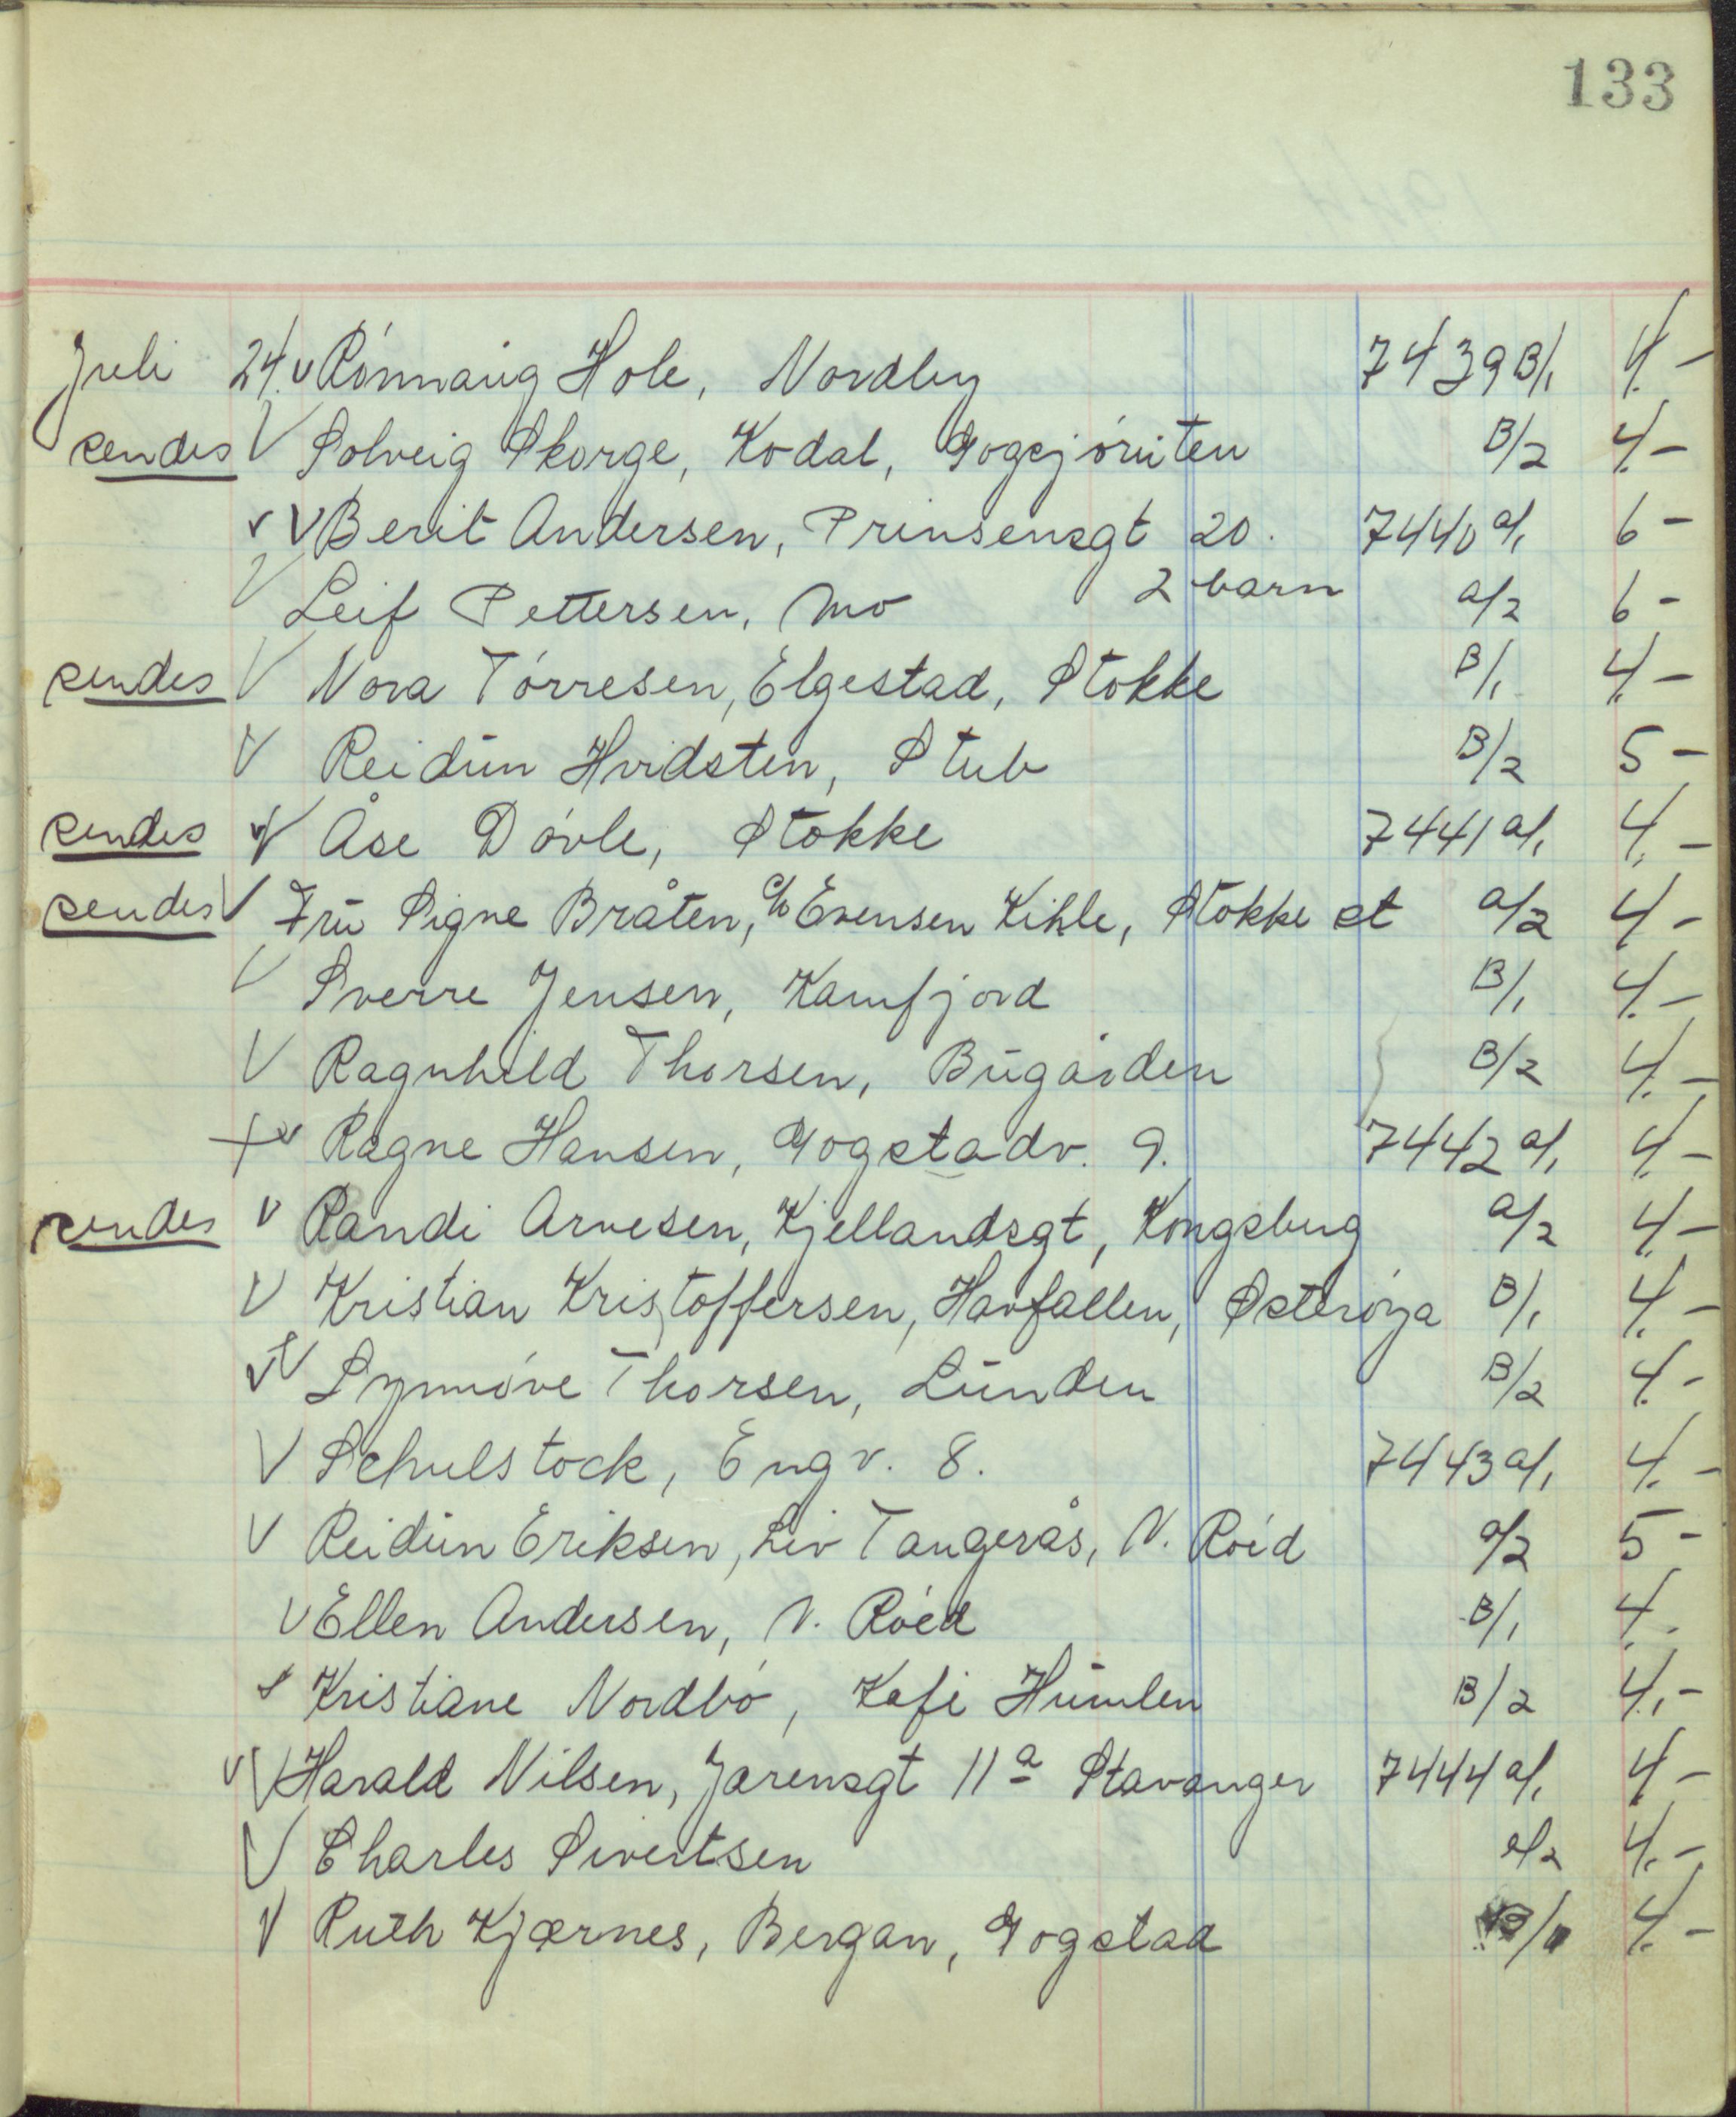 133
Juli 24. v Rónnaug Hole, Nordby 7439 B/1 4.-
sendes V Solveig Skorge, Kodal, Gogsjøruten B/2 4.-
v V Berit Andersen, Prinsensgt 20. 7440 a/1 6-
V Leif Pettersen, Mo 2 barn a/2 6-
sendes V Nora Tórresen, Elgestad, Stokke B/1 4.-
V Reidun Hvidsten, Stub B/2 5-
sendes V Åse Dóvle, Stokke 7441 a/1 4.-
sendes V Fru Signe Bråten, c/o Evensen Kihle, Stokke st a/2 4.-
V Sverre Jensen, Kamfjord B/1 4.-
V Ragnhild Thorsen, Bugården B/2 4.-
+ v Ragne Hansen, Gogstadv. 9. 7442 a/1 4.-
sendes v Randi Arvesen, Kjellandsgt, Kongsberg a/2 4.-
V Kristian Kristoffersen, Havfallen, Østerøya B/1 4.-
V Synnóve Thorsen, Lunden B/2 4.-
V Schulstock, Engv. 8. 7443 a/1 4.-
V Reidun Eriksen, Liv Tangerås, N. Róed a/2 5-
V Ellen Andersen, N. Róed B/1 4.
Kristiane Nordbó, Kafe Humlen B/2 4.-
v V Harald Nilsen, Jærensgt 11a Stavanger 7444 a/1 4.-
V Charles Sivertsen a/2 4.-
V Ruth Kjærnes, Bergan, Gogstad B/1 4.-